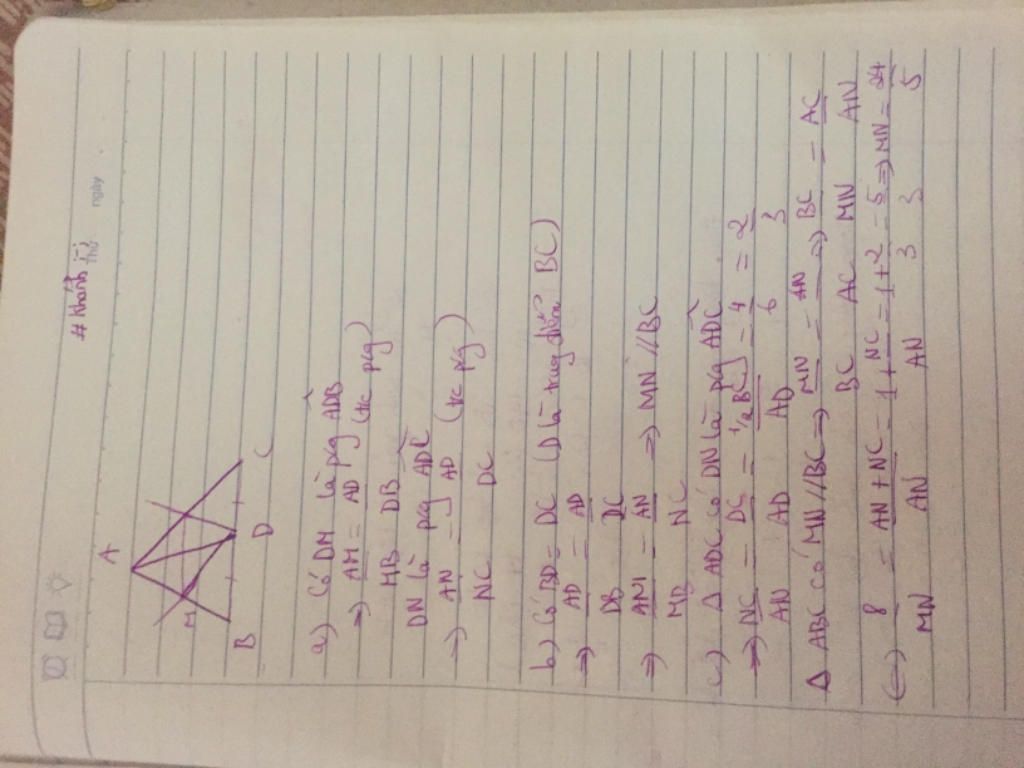 # Khánh
Thứ ngày
A
M
B D C
a) Có DM là pkg ADB̂
=> AM/MB = AD/DB (tc pkg)
DN là pkg ADĈ
=> AN/NC = AD/DC (tc pkg)
b) Có BD = DC (D là trung điểm BC)
=> AD/DB = AD/DC
=> AM/MB = AN/NC => MN // BC
c) Δ ADC có DN là pkg ADĈ
=> NC/AN = DC/AD = 1/2 BC/AD = 4/6 = 2/3
Δ ABC có MN // BC => MN/BC = AN/AC => BC/MN = AC/AN
(=) 8/MN = AN + NC/AN = 1 + NC/AN = 1 + 2/3 = 5/3 => MN = 24/5